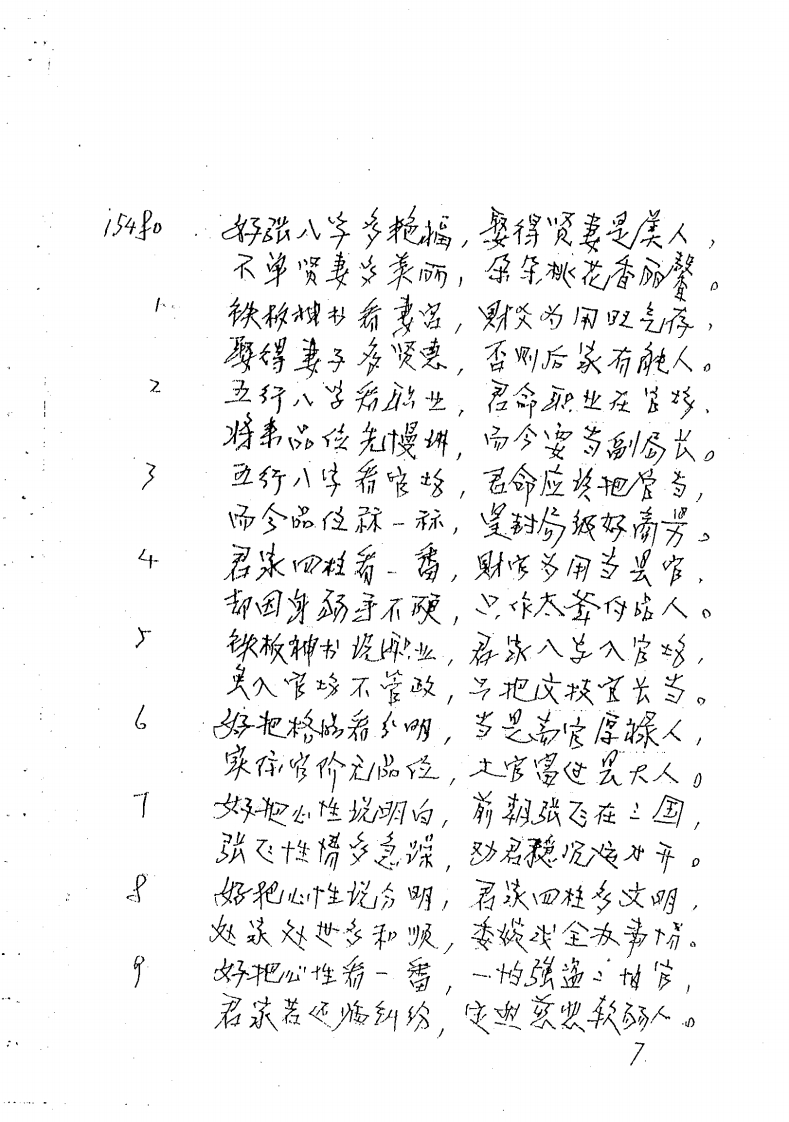 15480 好张八字多艳福，娶得贤妻是美人，
不单贤妻多美丽，朵朵桃花香丽馨。
1 铁板神书看妻宫，财爻为用旺气存，
娶得妻子多贤惠，否则后家有能人。
2 五行八字看职业，君命职业在官场，
将来品位先慢讲，而今要当副局长。
3 五行八字看官场，君命应该把官当，
而今品位称一称，是封局级好商量。
4 君家四柱看一番，财官为用当县官，
却因身弱手不硬，只作太爷付
5 铁板神书说职业，君家八字入官场，
奥入官场不管政，只把文技官长当。
6 好把格局看分明，当是高官厚禄人，
实际官阶无品位，土官富过县大人。
7 好把心性说明白，前朝张飞在三国，
张飞性情多急躁，劝君稳沉
8 好把心性说分明，君家四柱多文明，
处家处世多和顺，委婉 全办事情。
9 好把心性看一番，一怕强盗二怕官，
君家若还临纠纷，定
软弱人。
7